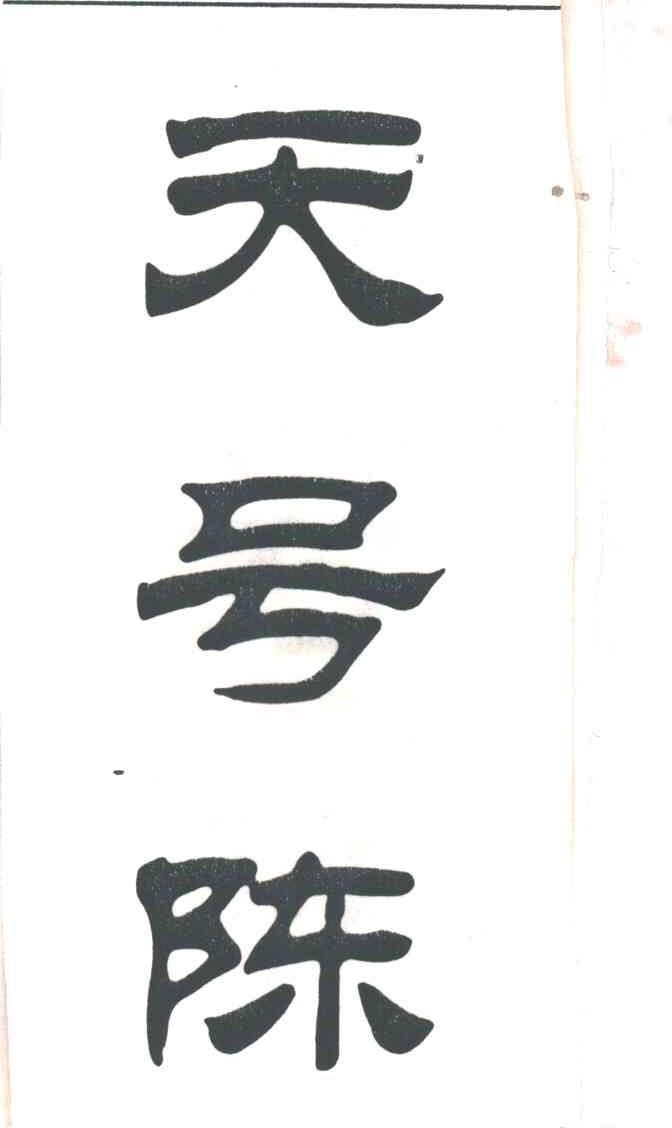 天号陈